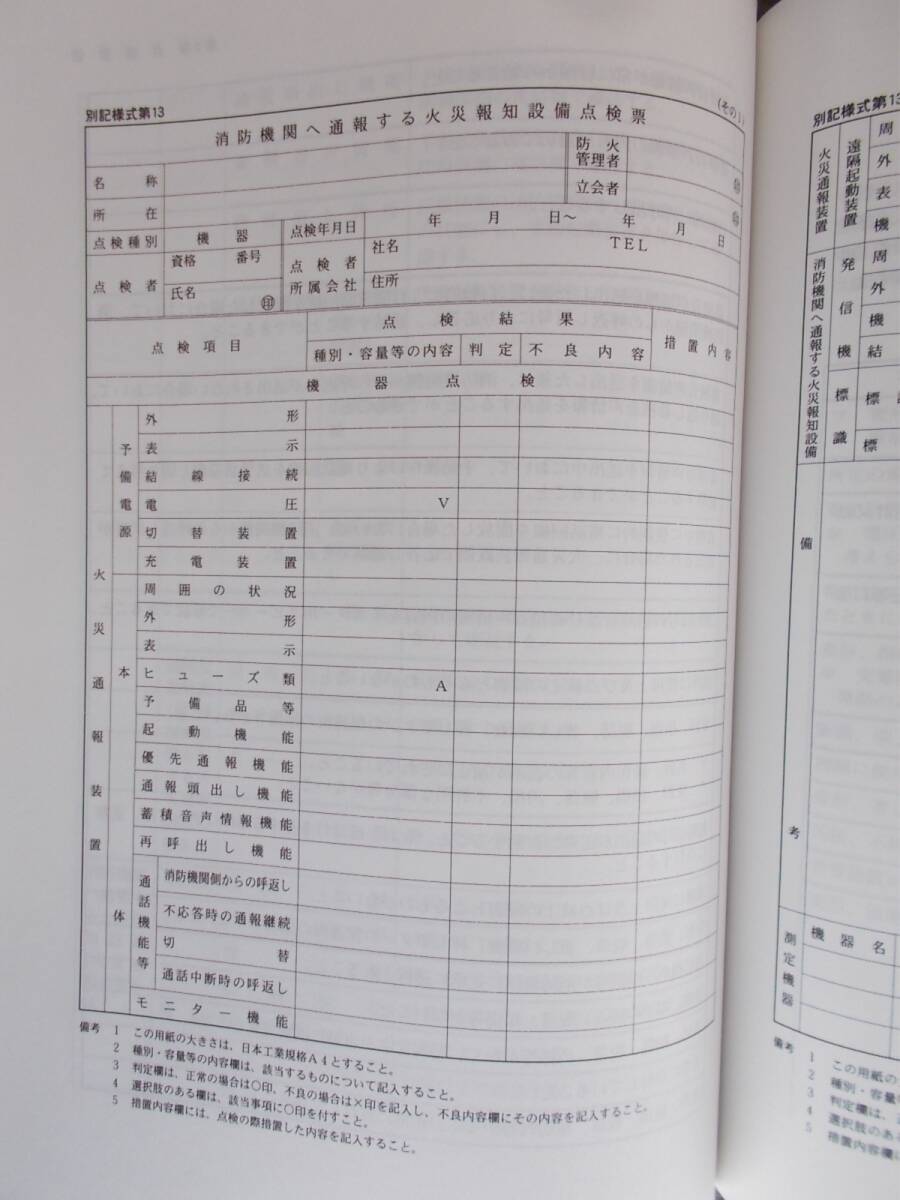 別記様式第13
(その1)
消防機関へ通報する火災報知設備点検票
名称
防火管理者
㊞
所在
立会者
㊞
点検種別
機器
点検年月日
年 月 日～ 年 月 日
点検者
資格 番号
氏名
㊞
点検者所属会社
社名 TEL
住所
点検項目
点検結果
措置内容
種別・容量等の内容
判定
不良内容
機器点検
火災通報装置
予備電源
外形
表示
結線接続
電圧 V
切替装置
充電装置
本体
周囲の状況
外形
表示
ヒューズ類 A
予備品等
起動機能
優先通報機能
通報頭出し機能
蓄積音声情報機能
再呼出し機能
通話機能等
消防機関側からの呼返し
不応答時の通報継続
切替
通話中断時の呼返し
モニター機能
備考 1 この用紙の大きさは、日本工業規格A4とすること。
2 種別・容量等の内容欄は、該当するものについて記入すること。
3 判定欄は、正常の場合は○印、不良の場合は×印を記入し、不良内容欄にその内容を記入すること。
4 選択肢のある欄は、該当事項に○印を付すこと。
5 措置内容欄には、点検の際措置した内容を記入すること。
別記様式第13
消防機関へ通報する火災報知設備
火災通報装置
遠隔起動装置
周
外
表
機
発信機
周
外
機
結
標識
標
標
備考
測定機器
機器名
備考 1 この用紙の大
2 種別・容量等
3 判定欄は、
4 選択肢のあ
5 措置内容欄に